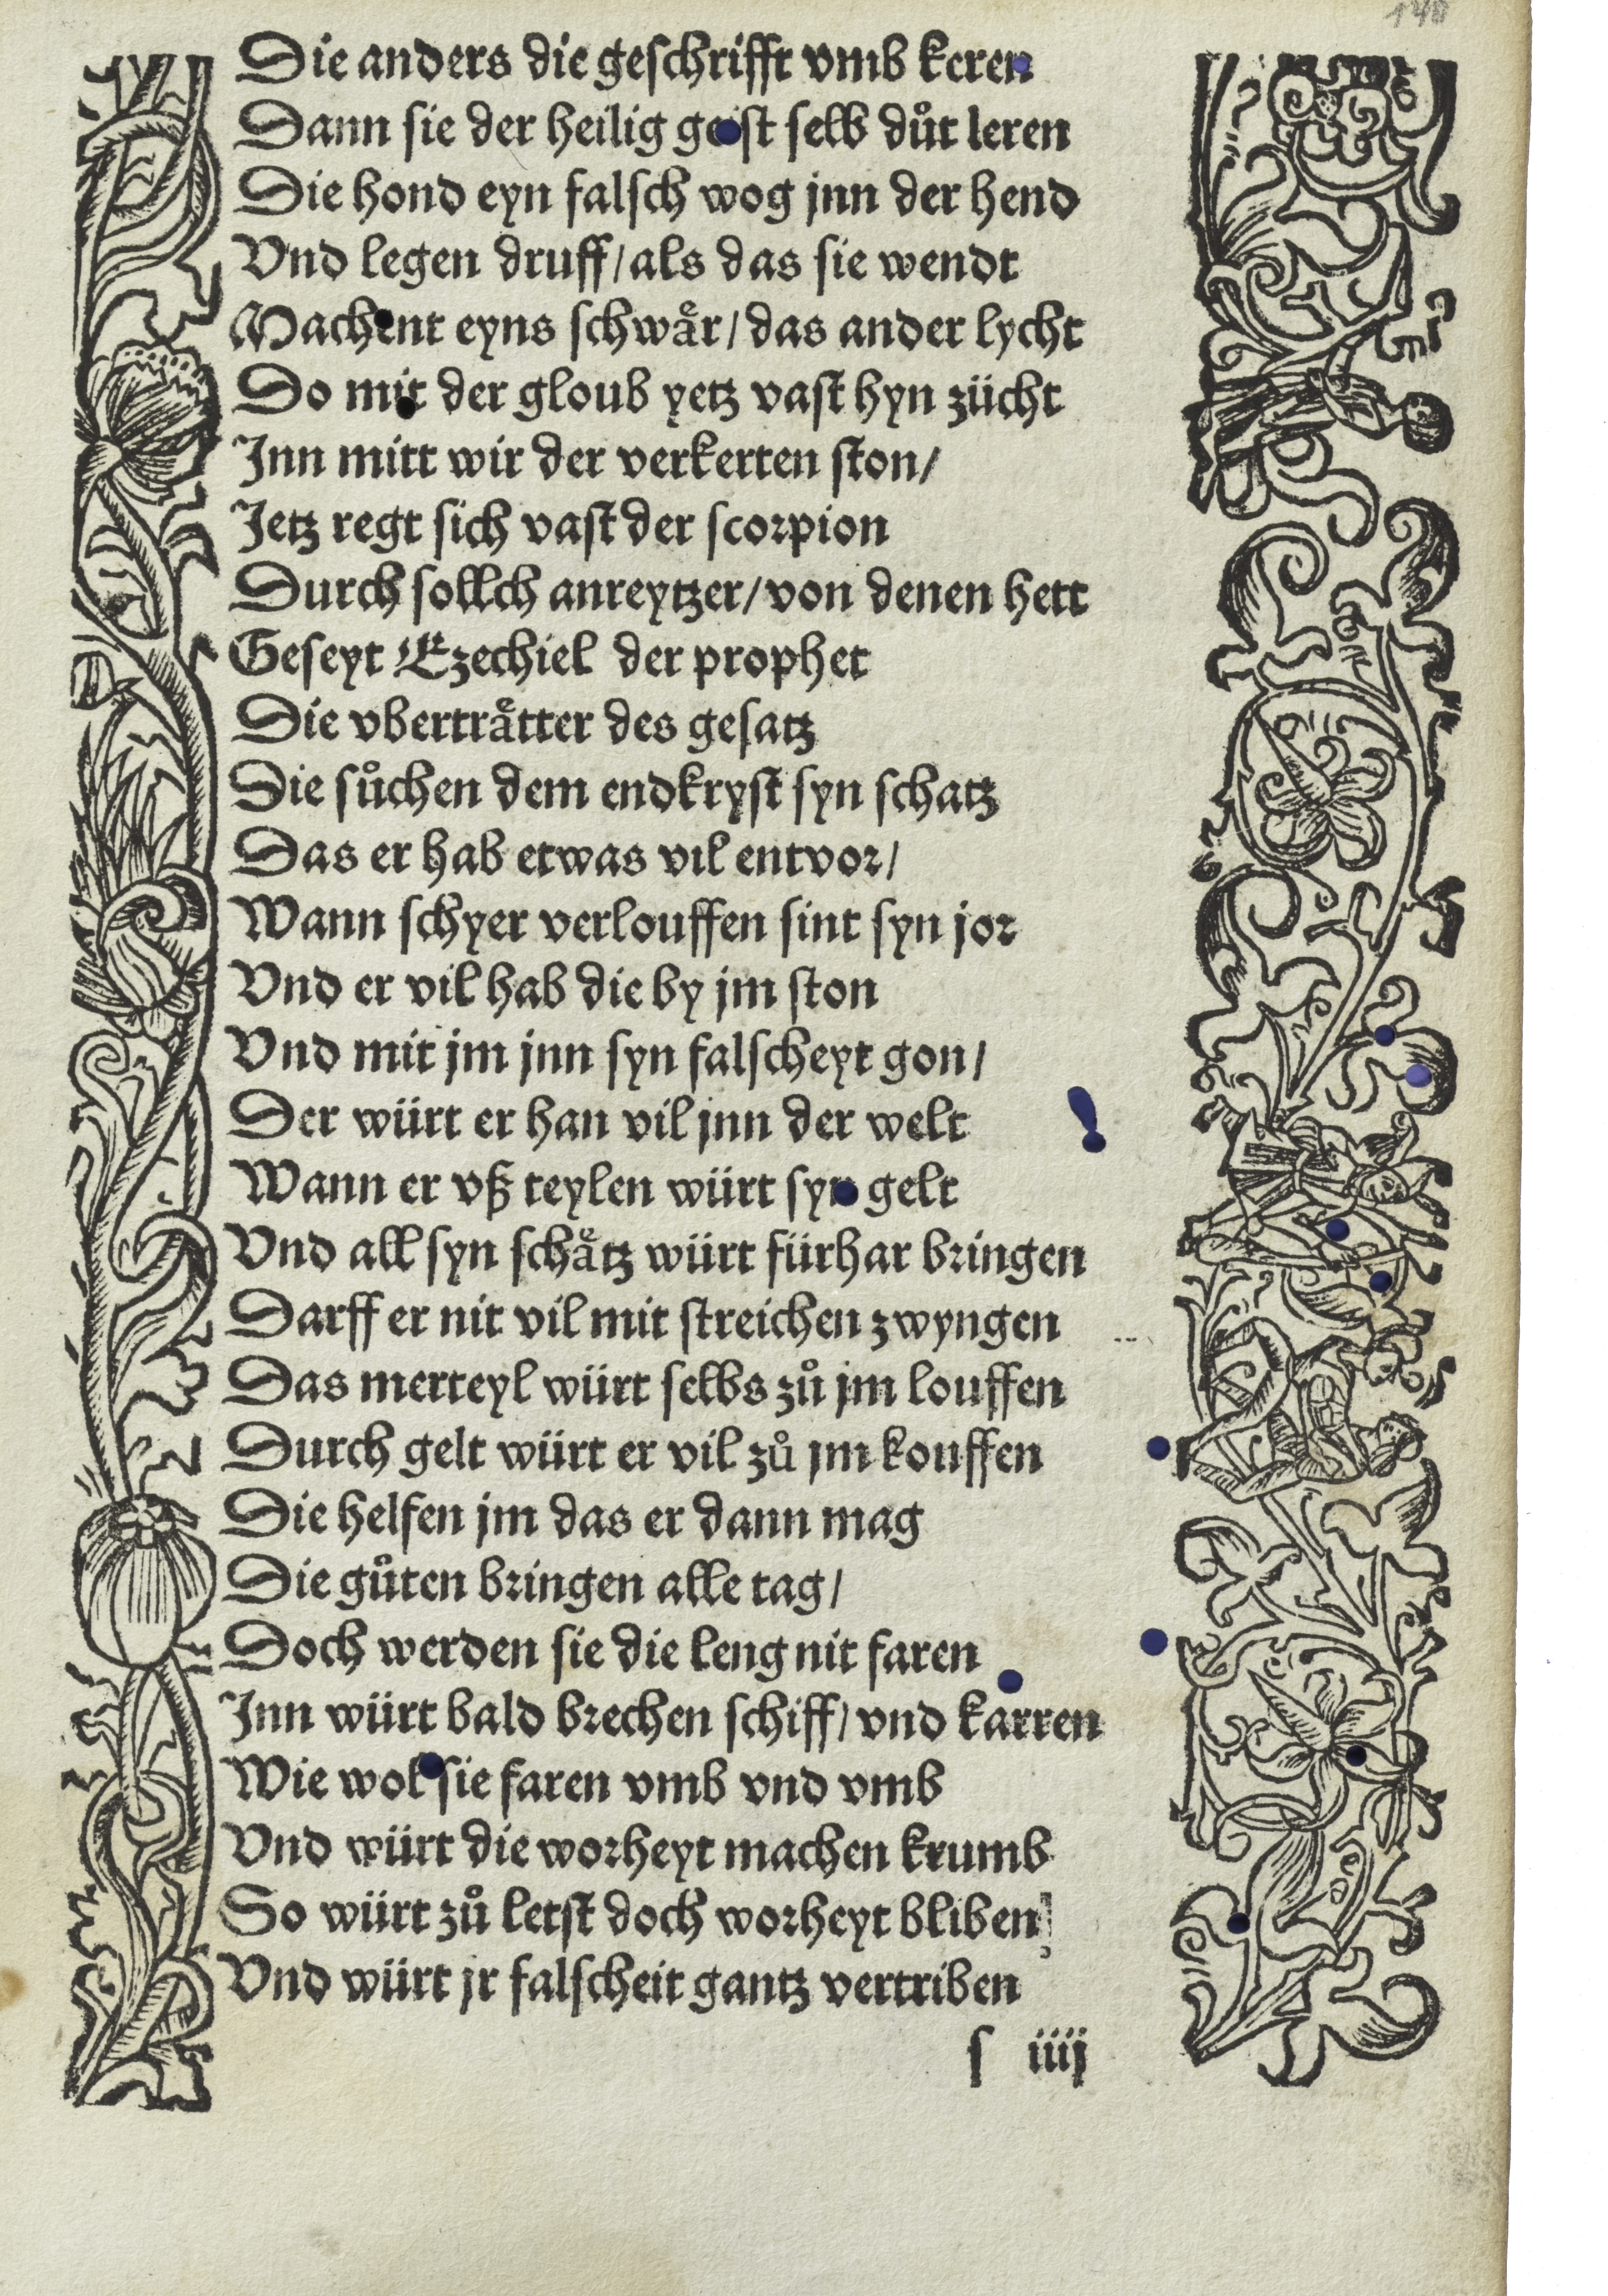 140
Die anders die geschrifft vmb keren
Dann sie der heilig geist selb důt leren
Die hond eyn falsch wog jnn der hend
Vnd legen druff/als das sie wendt
Machent eyns schwaͤr/das ander lycht
Do mit der gloub yetz vast hyn zücht
Jnn mitt wir der verkerten ston/
Jetz regt sich vast der scorpion
Durch sollch anreytzer/von denen hett
Geseyt Ezechiel der prophet
Die vbertraͤtter des gesatz
Die sůchen dem endkryst syn schatz
Das er hab etwas vil entvor/
Wann schyer verlouffen sint syn jor
Vnd er vil hab die by jm ston
Vnd mit jm jnn syn falscheyt gon/
Der würt er han vil jnn der welt
Wann er vß teylen würt syn gelt
Vnd all syn schaͤtz würt fürhar bringen
Darff er nit vil mit streichen zwyngen
Das merteyl würt selbs zů jm louffen
Durch gelt würt er vil zů jm kouffen
Die helfen jm das er dann mag
Die gůten bringen alle tag/
Doch werden sie die leng nit faren
Jnn würt bald brechen schiff/vnd karren
Wie wol sie faren vmb vnd vmb
Vnd würt die worheyt machen krumb
So würt zů letst doch worheyt bliben
Vnd würt jr falscheit gantz vertriben
s iiij